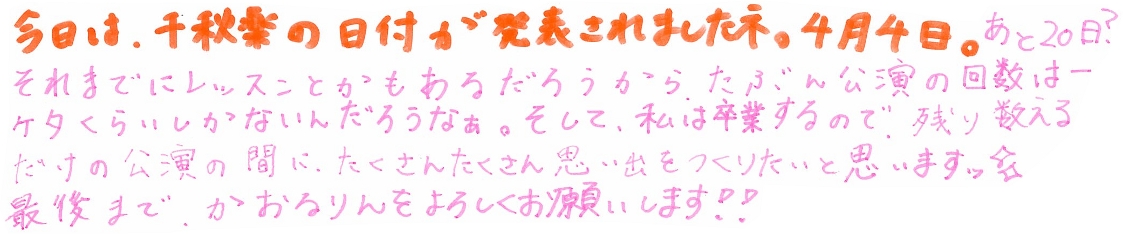 今日は、千秋楽の日付が発表されましたネ。4月4日。あと20日?
それまでにレッスンとかもあるだろうから、たぶん公演の回数は一
ケタくらいしかないんだろうなぁ。そして、私は卒業するので、残り数える
だけの公演の間に、たくさんたくさん思い出をつくりたいと思いますッ☆
最後まで、かおるりんをよろしくお願いします!!